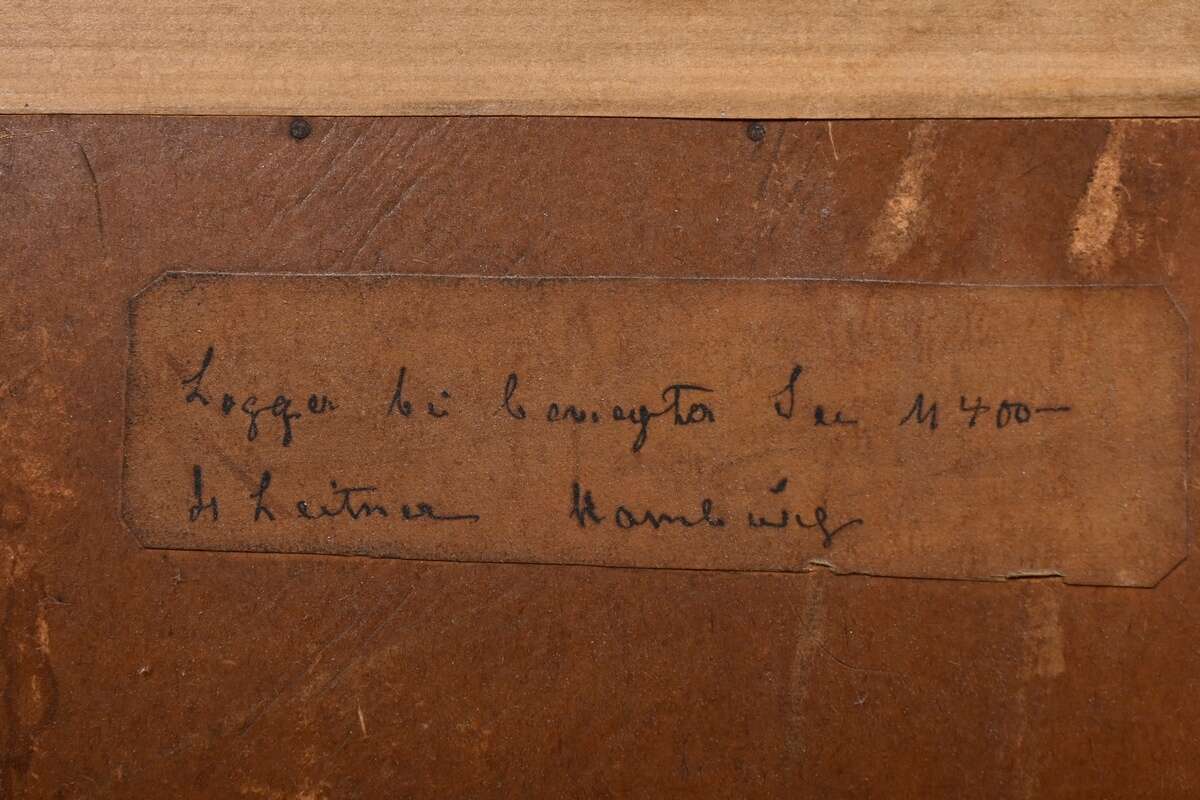 Logger bei bewegter See M 400–
H Leitner Hamburg